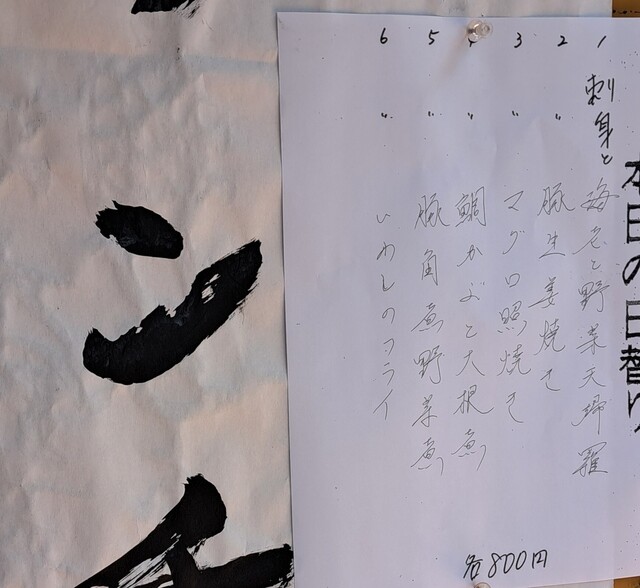 本日の日替り
1 刺身と海老と野菜天婦羅
2 〃 豚生姜焼き
3 〃 マグロ照焼き
〃 鯛かぶと大根煮
5 〃 豚角煮野菜煮
6 〃 いわしのフライ
各800円
ン